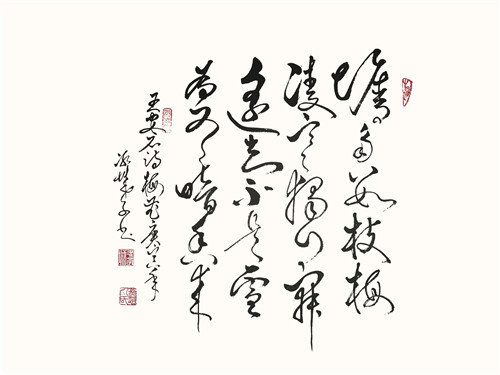 墙角数枝梅
凌寒独自开
遥知不是雪
为有暗香来
王安石诗梅花庚寅年
书